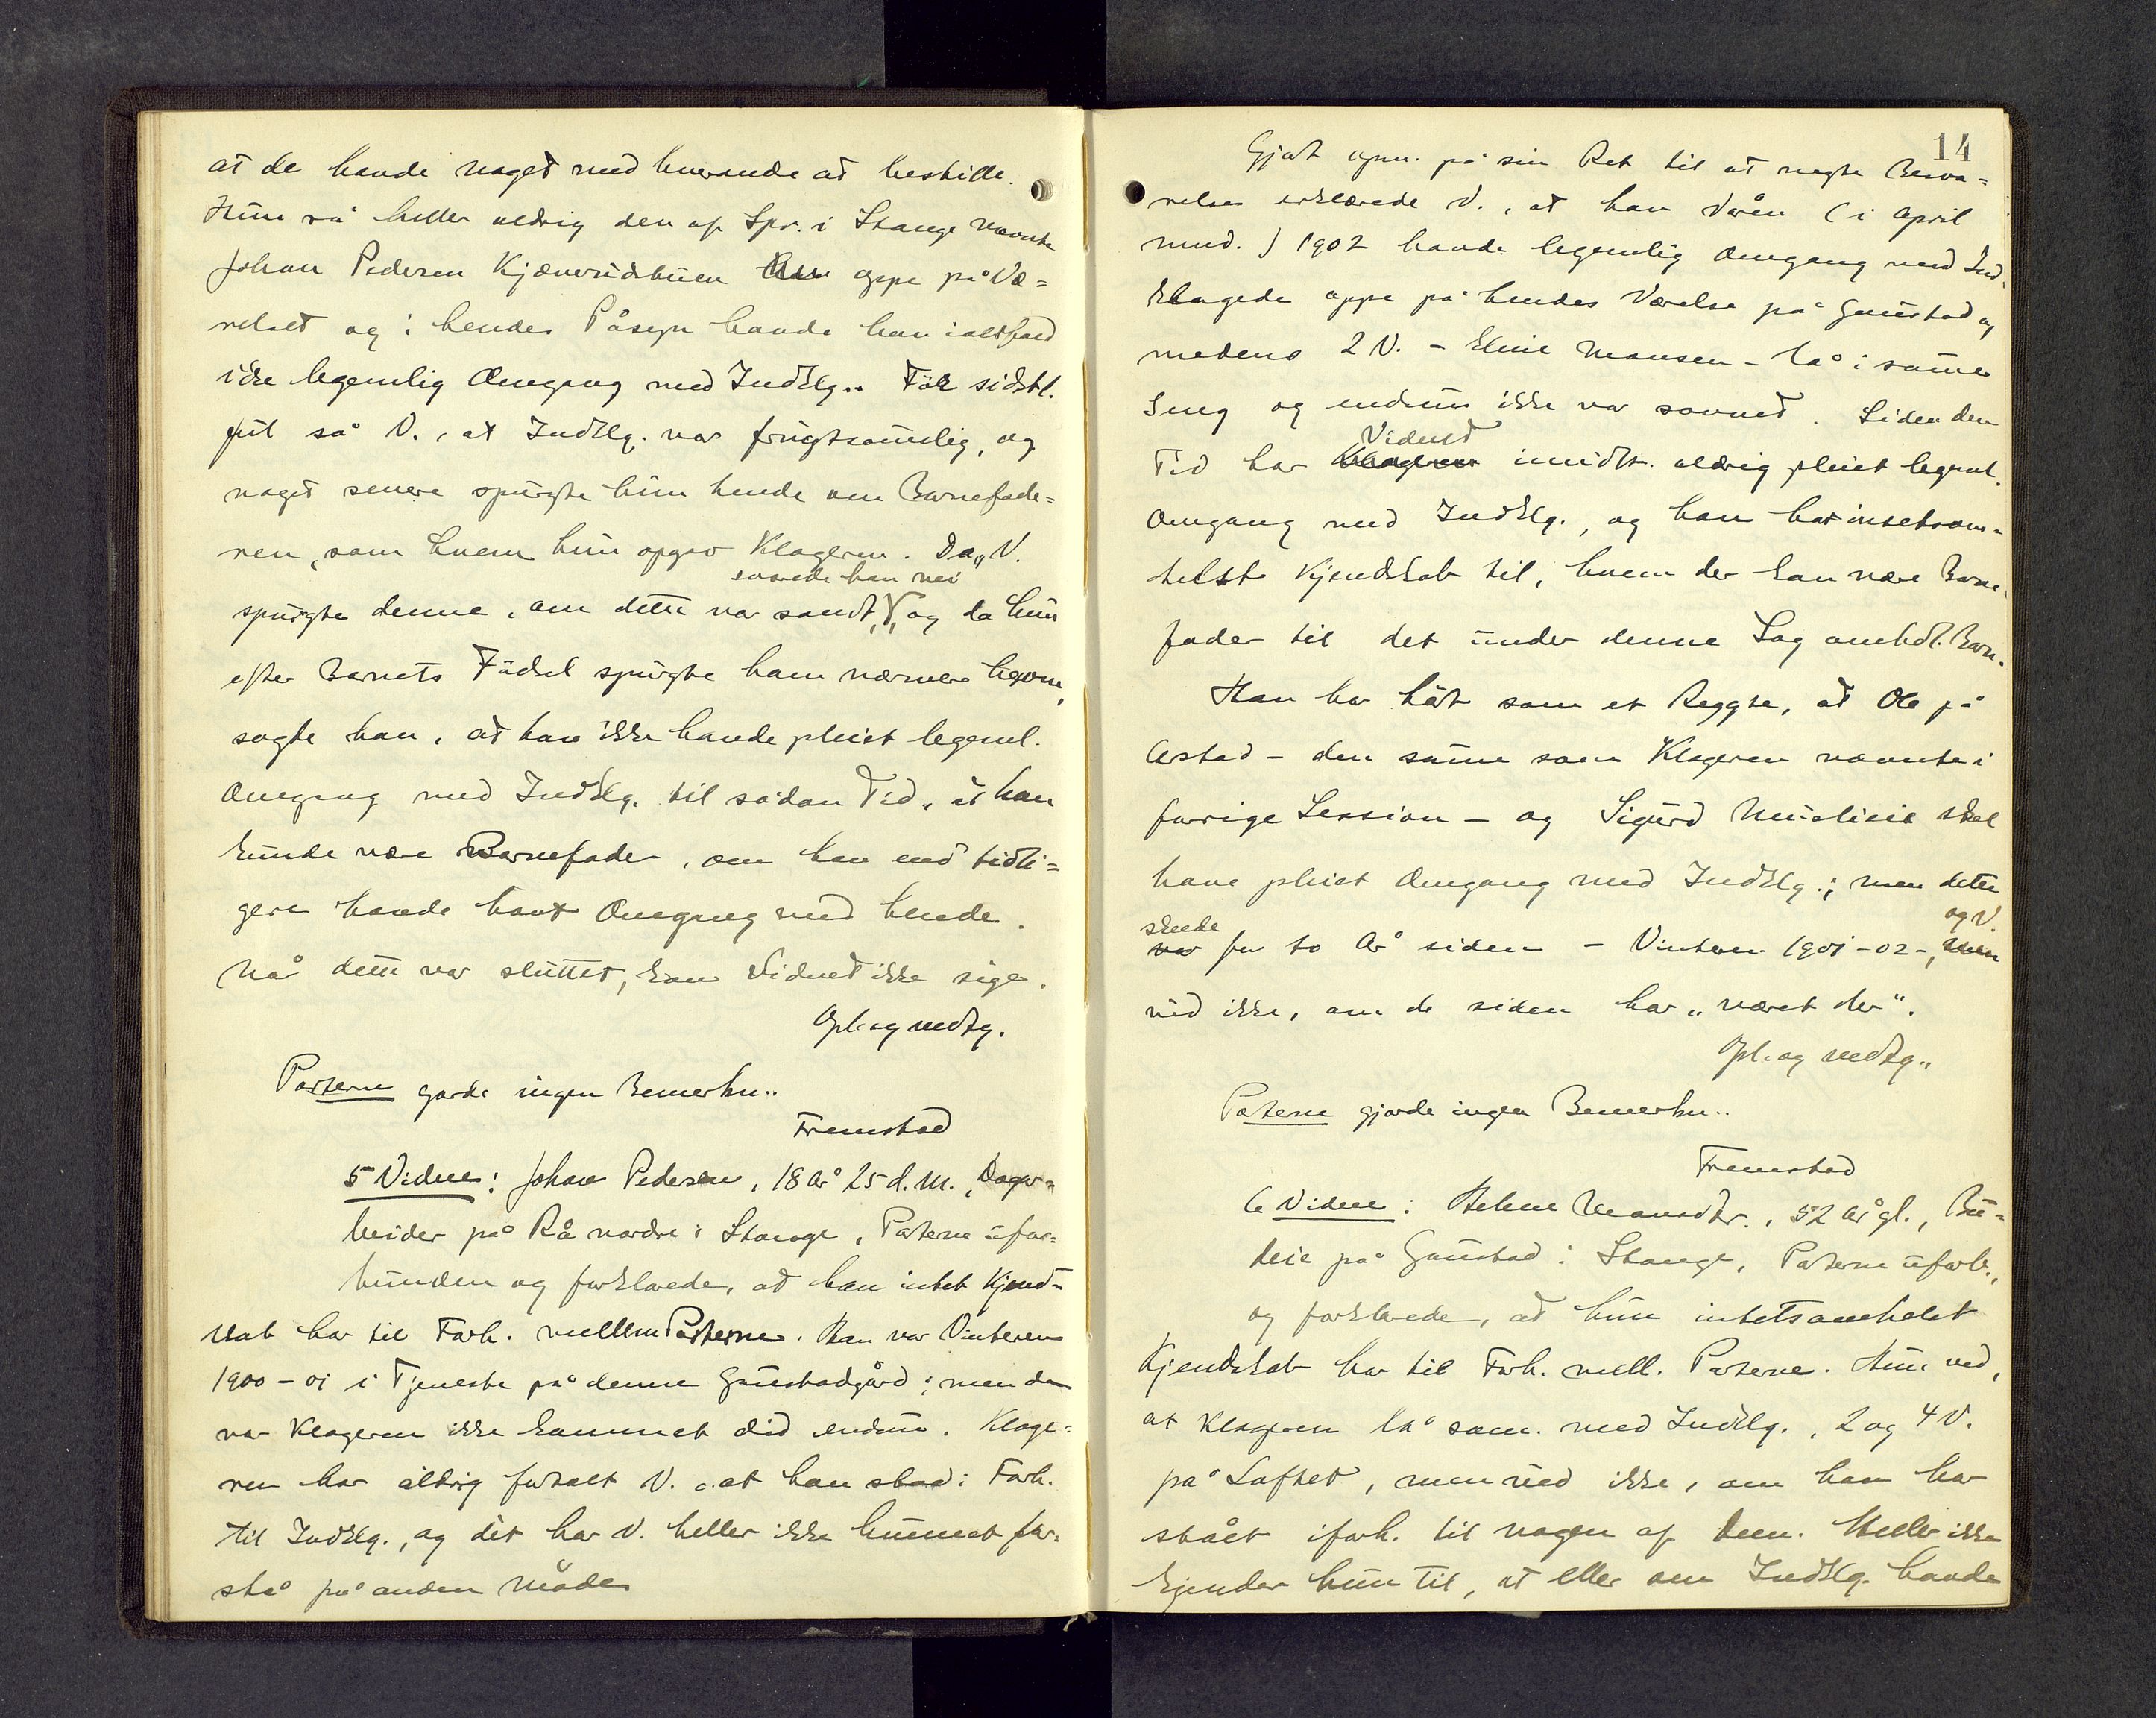 at de havde noget med hverandre at bestille.
Hun så heller aldrig den af Spr. i Stange nævnte
Johan Pedersen Kjæverudstuen oppe på Væ=
relset og i hendes Påsyn havde han ialtfald
ikke legemlig Omgang med Indklg.. Før sidstl.
Jul så V., at Indklg. var frugtsommelig, og
noget senere spurgte hun hende om Barnefade=
ren, som hvem hun opgav Klageren. Da V.
svarede han nei
spurgte denne, om dette var sandt, og da hun
efter Barnets Födsel spurgte ham nærmere herom,
sagde han, at han ikke havde pleiet legeml.
Omgang med Indklg. til sådan Tid, at han
kunde være Barnefader, om han end tidli=
gere havde havt Omgang med hende.
Når dette var sluttet, kan Vidnet ikke sige.
Opl. og vedtg.
Parterne gjorde ingen Bemerkn..
Fremstod
5 Vidne: Johan Pedersen, 18 år 25 d. M., Dagar=
beider på Rå nordre i Stange, Parterne ufor=
bunden og forklarede, at han intet Kjend=
skab har til Forh. mellem Parterne. Han var Vinteren
1900-01 i Tjeneste på denne Gaustadgård; men da
var Klageren ikke kommet did endnu. Klage=
ren har aldrig fortalt V. at han stod i Forh.
til Indklg., og det har V. heller ikke kunnet for=
stå på anden Måde
14
Gjort opm. på sin Ret til at negte Besva=
relse erklærede V., at han Våren (i April
mnd.) 1902 havde legemlig Omgang med Ind=
klagede oppe på hendes Værelse på Gaustad og
medens 2 V. - Eline Monsen - lå i samme
Seng og endnu ikke var sovnet. Siden den
Vidnet
Tid har Klageren imidlt. aldrig pleiet legeml.
Omgang med Indklg., og han har intetsom=
helst Kjendskab til, hvem der kan være Barne=
fader til det under denne Sag omhdl. Barn.
Han har hørt som et Rygte, at Ole på
Arstad - den samme som Klageren nævnte i
forrige Session - og Sigurd skal
have pleiet Omgang med Indklg.; men dette
skede og V.
var for to År siden - Vinteren 1901-02 -, men
ved ikke, om de siden har „været der".
Opl. og vedtg..
Parterne gjorde ingen Bemerkn..
Fremstod
6 Vidne: Helene Monsdtr., 52 År gl., Bu=
deie på Gaustad i Stange, Parterne uforb.,
og forklarede, at hun intetsomhelst
Kjendskab har til Forh. mell. Parterne. Hun ved,
at Klageren lå sam. med Indklg., 2 og 4 V.
på Loftet, men ved ikke, om han har
stået i forh. til nogen af dem. Heller ikke
kjender hun til, at eller om Indklg. havde